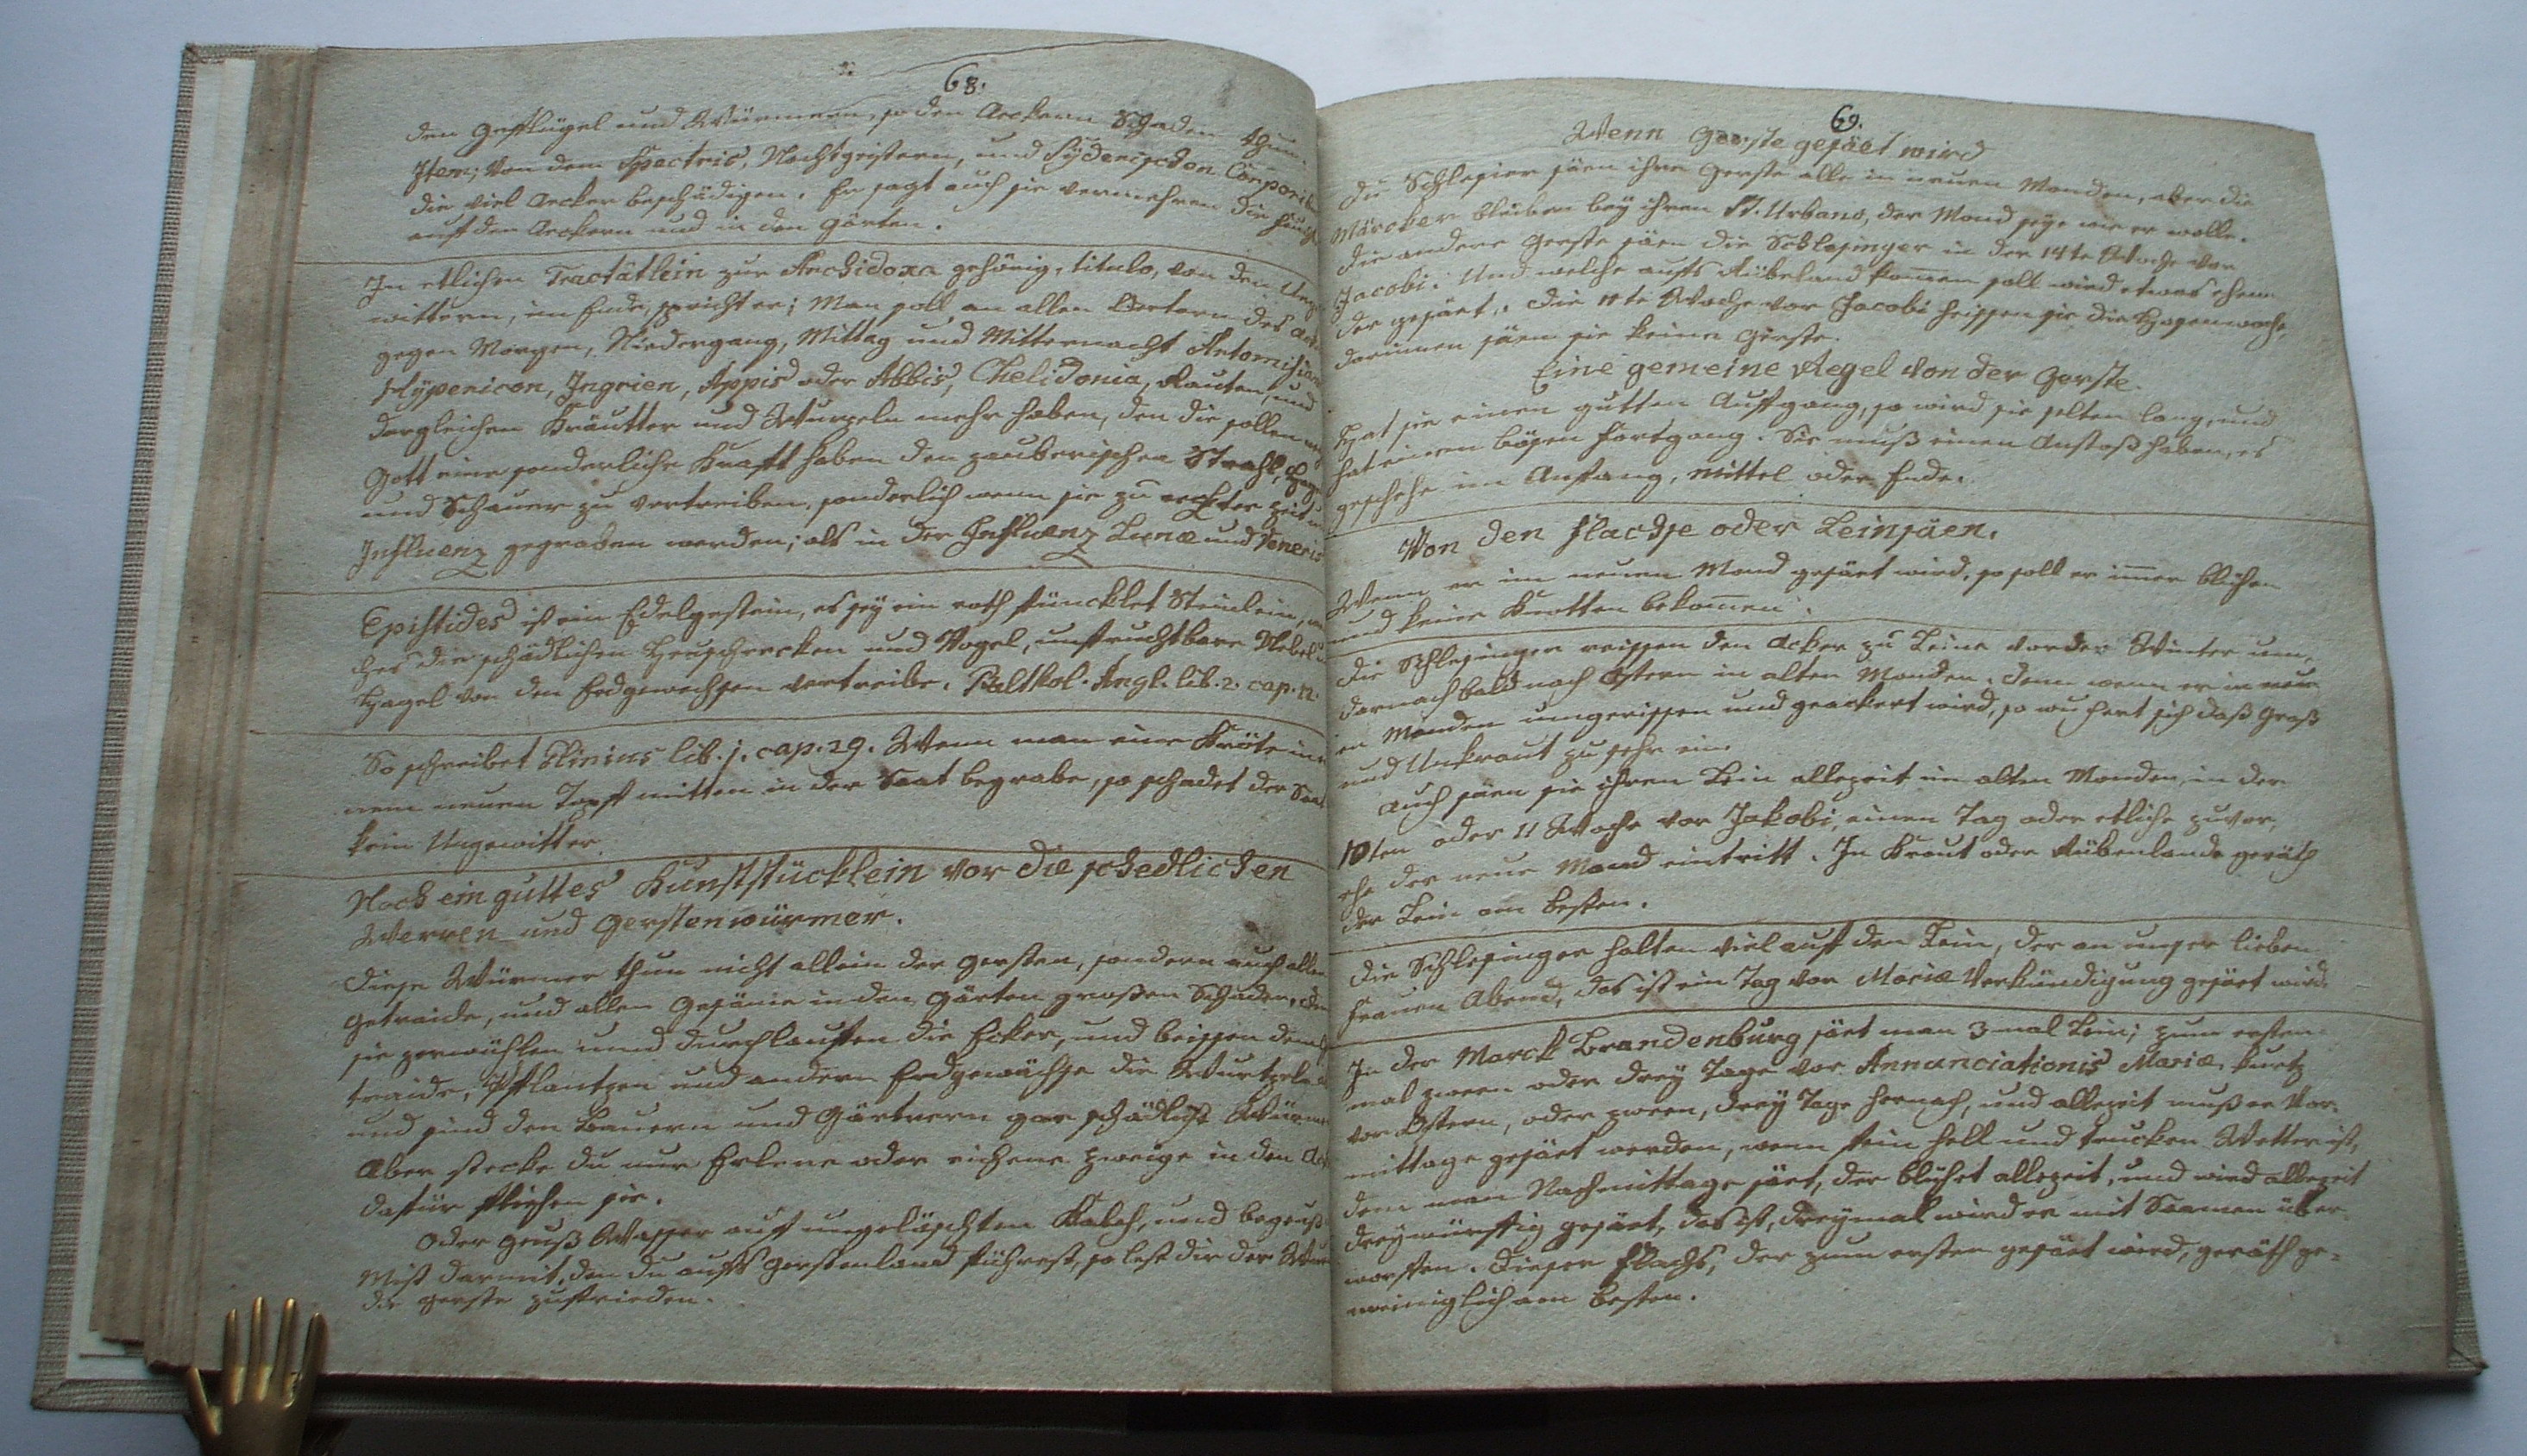 68.
den Geflügel und Würmern, so den Aeckern Schaden thun.
Item; Von dem Spectris, Nachtgeistern, und Syderischen Corporib
die viel Aecker beschädigen. Er sagt auch sie vermehren die
auf den Aeckern und in den Gärten.
In etlichen Tractätlein zur Archidoxa gehörig, titulo, von den Unge
wittern, im Ende, spricht er; Man soll an allen Oertern des
gegen Morgen, Niedergang, Mittag und Mitternacht Artomisiam
Hypericon, Ingrien, Appis oder Abbis, Chelidonia, Rauten, und
dergleichen Kräutter und Wurzeln mehr haben, den die sollen
Gott eine sonderliche Krafft haben den zauberischen Strahl,
und Schauer zu vertreiben, sonderlich wenn sie zu rechter Zeit
Influenz gegraben werden; als in der Influenz Lunæ und Veneris
Epistides ist ein Edelgestein, es sey ein roth füncklet Steinlein,
ches die schädlichen Heuschrecken und Vogel, unfruchtbare Nebel
Hagel von den Erdgewechsen vertreibe. Baltkol. Angl. lib. 2. cap. 12.
So schreibet Plinius lib. j. cap. 29. Wenn man eine Kröte in
nem neuen Topff mitten in der Saat begrabe, so schadet der Saat
kein Ungewitter.
Noch ein guttes Kunststücklein vor die schedlichen
Werren und Gerstenwürmer.
Diese Würmer thun nicht allein der Gersten, sondern auch allen
Getraide, und allen Gesäme in den Gärten grossen Schaden,
sie zerwühlen und durchlauffen die Ecker, und beissen dem
traide, Pflantzen und andern Erdgewächse die Wurtzeln
und sind den Bauern und Gärtnern gar schädliche Würme
Aber stecke du nur Erlene oder eichene Zweige in den
dafür fliehen sie.
Oder geuß Wasser auf ungelöschten Kalch, und begeuß
Mist darmit, den du aufs Gerstenland führest, so lest dir der
die Gerste zufrieden.
69.
Wenn Gerste gesäet wird
Die Schlesier säen ihre Gerste alle in neuen Monden, aber die
Märcker bleiben bey ihren St. Urbano, der Mond sey wie er wolle.
Die andere Gerste säen die Schlesinger in der 14te Woche vor
Jacobi. Und welche aufs Rübeland komen soll wird etwas ehen
der gesäet. Die 11te Woche vor Jacobi heissen sie die Hasenwoche,
darinnen säen sie keine Gerste.
Eine gemeine Regel von der Gerste.
Hat sie einen gutten Auffgang, so wird sie selten lang, und
hat einen bösen Fortgang. Sie muß einen Anstoß haben, es
geschehe im Anfang, Mittel oder Ende.
Von den Flachse oder Leinsäen.
Wenn er im neuen Mond gesäet wird, so soll er imer blühen
und keine Knotten bekomen.
Die Schlesinger reissen den Acker zu Leine vor der Winter um,
darnach bald nach Ostern in alten Monden. Denn wenn er in neu
en Monden umgerissen und geackert wird, so wuchert sich daß Graß
und Unkraut zu sehr ein.
Auch säen sie ihren Lein allezeit im alten Monden, in der
10ten oder 11 Woche vor Jakobi, einen Tag oder etliche zuvor,
ehe der neue Mond eintritt. In Kraut oder Rübenlande geräth
der Lein am besten.
Die Schlesinger halten viel auff den Lein, der an unser lieben
Frauen Abend, das ist ein Tag vor Mariæ Verkündigung gesäet wird.
In der Marck Brandenburg säet man 3 mal Lein; zum ersten
mal zween oder drey Tage vor Annunciationis Mariæ, kurtz
vor Ostern, oder zween, drey Tage hernach, und allezeit muß er Vor-
mittage gesäet werden, wenn fein hell und trucken Wetter ist,
dem man Nachmittage säet, der blühet allezeit, und wird allezeit
dreywürffig gesäet, das ist, dreymal wird er mit Saamen über-
worffen. Dieser Flachs, der zum ersten gesäet wird, geräth ge-
meiniglich am besten.